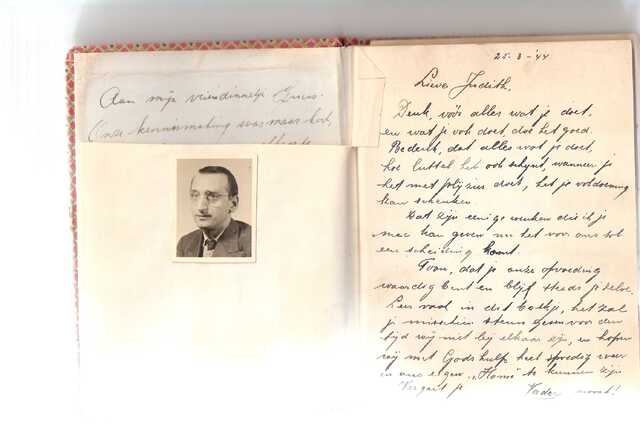 Aan mijn vriendinnetje
Onze kennismaking was maar kort,
25-3-'44
Lieve Judith,
Denk, vóór alles wat je doet,
en wat je ook doet, doe het goed.
Bedenk, dat alles wat je doet,
hoe luttel het ook schijnt, wanneer je
het met plezier doet, het je voldoening
kan schenken.
Dat zijn eenige wenken die ik je
mee kan geven nu het voor ons tot
een scheiding komt.
Toon, dat je onze opvoeding
waardig bent en blijf steeds je zelve.
Lees vaak in dit boekje, het zal
je misschien steun geven voor den
tijd wij niet bij elkaar zijn, en hopen
wij met Godshulp heel spoedig weer
in ons eigen „Home" te kunnen zijn
Vergeet je Vader nooit!